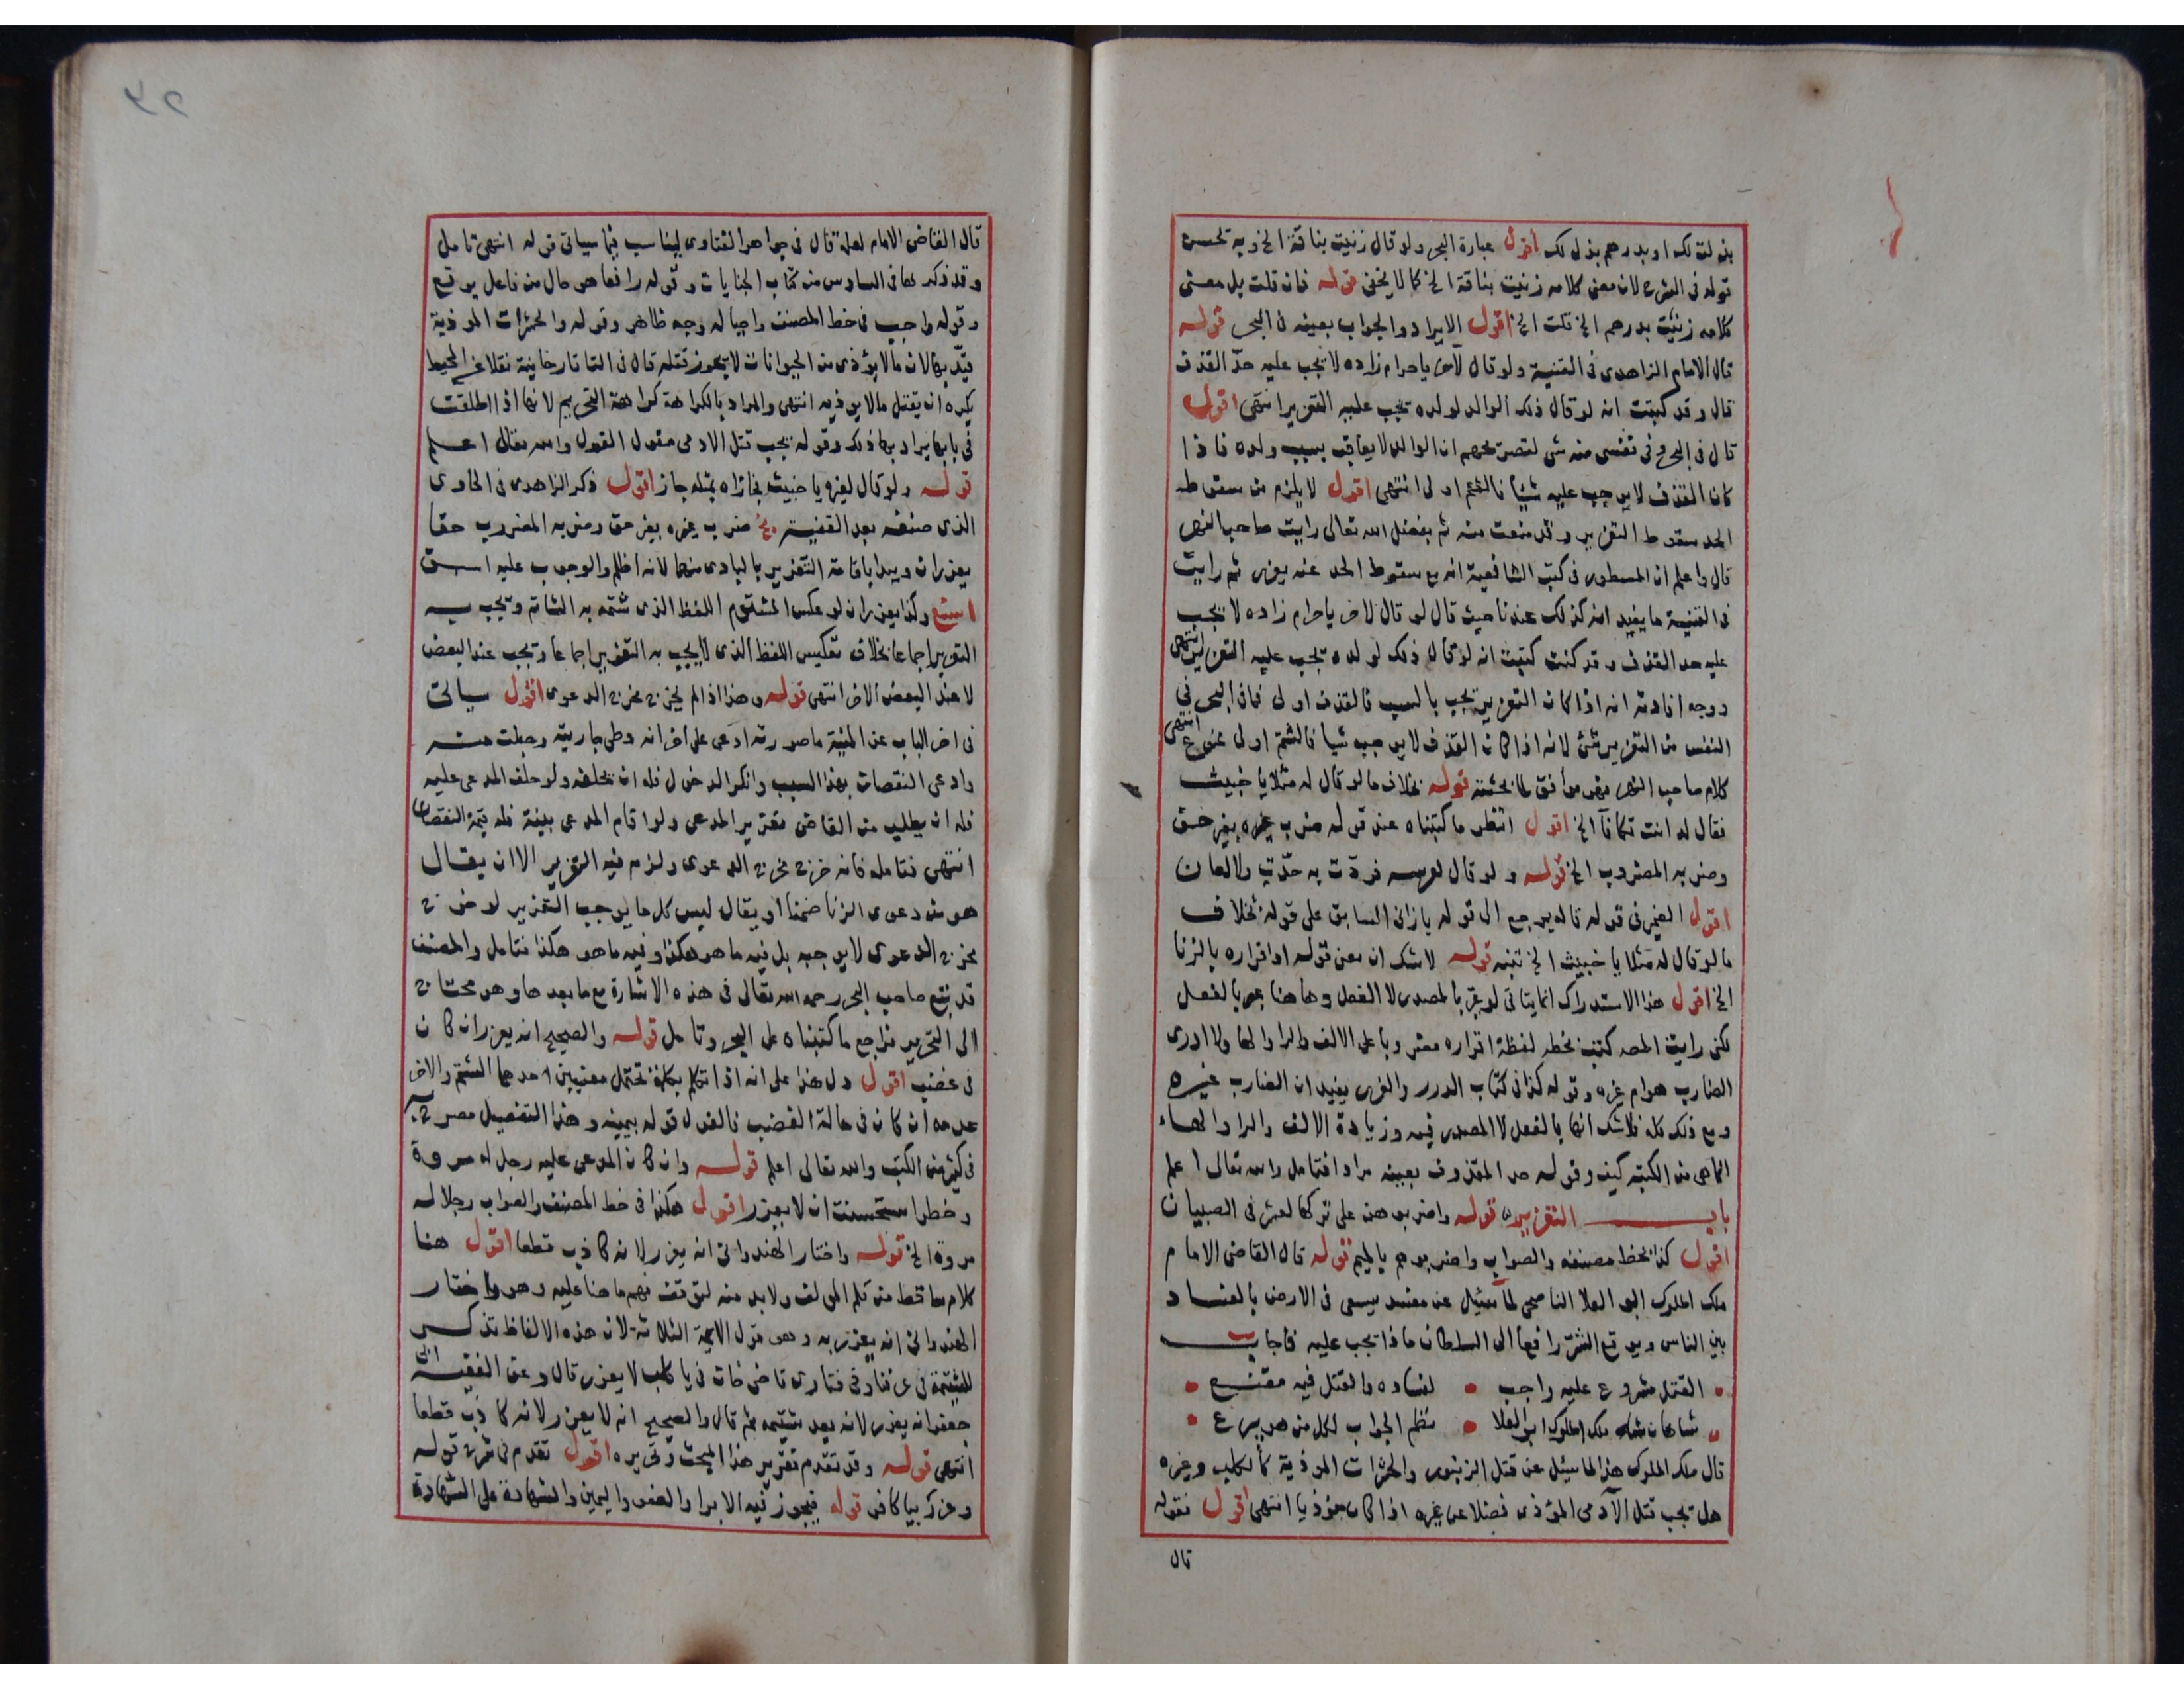 بذلت لك او بدرهم بذل لك اقول عبارة البحر ولو قال زنيت بناقة الخ وبه تحسن
قوله في الشرح لان معنى كلامه زنيت بناقة الخ كما لا يخفى قوله فان قلت بل معنى
كلامه زنيت بدرهم الخ قلت الخ اقول الايراد والجواب بعينه في البحر قوله
قال الامام الزاهدى في القنية ولو قال لآخر ياحرام زاده لا يجب عليه حدّ القذف
قال وقد كتبت انه لو قال ذلك الوالد لولده يجب عليه التعزير انتهى اقول
قال في البحر وفي نفسى منه شى لتصريحهم ان الوالد لا يعاقب بسبب ولده فاذا
كان القذف لا يوجب عليه شيأ فالشتم اولى انتهى اقول لا يلزم من سقوط
الحد سقوط التعزير وقد منعت منه ثم بفضل الله تعالى رايت صاحب النهر
قال واعلم ان المسطور في كتب الشافعية انه مع سقوط الحد عنه يعزر ثم رايت
في القنية ما يفيد انه كذلك عندنا حيث قال لو قال لاخر ياحرام زاده لا يجب
عليه حد القذف وقد كنت كتبت انه لو قال ذلك لولده يجب عليه التعزير انتهى
ووجه افادته انه اذا كان التعزير يجب بالسب فالقذف اولى فما في البحر في
النفس من التعزير شئ لانه اذا كان القذف لا يوجب شيأ فالشتم اولى ممنوع انتهى
كلام صاحب النهر فهو موافق لما بحثته قوله بخلاف ما لو قال له مثلا يا خبيث
فقال له انت تكافآ الخ اقول انظر ما كتبناه عند قوله ضرب غيره بغير حق
وضربه المضروب الخ قوله ولو قال لعرسه فردّت به حدّت ولا لعان
اقول الضمير في قوله قاله يرجع الى قوله يازانى السابق على قوله بخلاف
ما لو قال له مثلا يا خبيث الخ تنبه قوله لاشك ان معنى قوله او اقراره بالزنا
الخ اقول هذا الاستدراك انما يتاتى لو عبّر بالمصدر لا الفعل وهاهنا عبر بالفعل
لكن رايت المصه كتب بخطه لفظة اقراره مضروبا على الالف والراء والهاء ولا ادرى
الضارب هو ام غيره وقوله كذا في كتاب الدرر والغرر يفيد ان الضارب غيره
ومع ذلك كله فلاشك انها بالفعل لا المصدر فيه وزيادة الالف والراء والهاء
انما هى من الكتبة كيف وقوله حد المقذوف بعينه مرادا فتامل والله تعالى اعلم
باب التعزير قوله واضربوهن على تركها لعشر في الصبيان
اقول كذا بخط مصنفه والصواب واضربوهم بالميم قوله قال القاضى الامام
ملك الملوك ابو العلا الناصحى لما سئل عن مفسد يسعى في الارض بالفساد
بين الناس ويوقع الشرّ رافعا الى السلطان ماذا يجب عليه فاجاب
القتل مشروع عليه واجب لفساده والقتل فيه مقنع
شاهان شاه ملك الملوك ابو العلا نظم الجواب لكل من هو يبرع
قال ملك الملوك هذا لما سئل عن قتل الزنبور والحشرات الموذية كالكلب وغيره
هل يجب قتل الآدمى الموذى فضلا عن غيره اذا كان موذيا انتهى اقول فقوله
قال
قال القاضى الامام لعله قال في جواهر الفتاوى ليناسب فيما سياتى قوله انتهى تامل
وقد ذكرها في السادس من كتاب الجنايات وقوله رافعا هو حال من فاعل يوقع
وقوله واجب في خط المصنف واجبا له وجه ظاهر وقوله والحشرات الموذية
قيّد بها لان ما لا يؤذى من الحيوانات لا يجوز قتله قال في التاتارخانية نقلا عن المحيط
يكره ان يقتل مالا يوذيه انتهى والمراد بالكراهة كراهة التحريم لانها اذا اطلقت
في بابها يراد بها ذلك وقوله يجب قتل الادمى مقول القول والله تعالى اعلم
قوله ولو قال لغيره يا خبيث فجازاه بمثله جاز اقول ذكر الزاهدى في الحاوى
الذى صنفه بعد القنية ضرب غيره بغير حق وضربه المضروب حقا
يعزران ويبدا باقامة التعزير بالبادى منهما لانه اظلم والوجوب عليه اسبق
وكذا يعزران لو عكس المشتوم اللفظ الذى شتمه به الشاتم ويجب به
التعزير اجماعا بخلاف تعكيس اللفظ الذى لا يجب به التعزير اجماعا ويجب عند البعض
لا عند البعض الاخر انتهى قوله وهذا اذا لم يخرج مخرج الدعوى اقول سياتى
في اخر الباب عن المنية ما صورته ادعى على اخر انه وطى جاريته وحبلت منه
وادعى النقصان بهذا السبب وانكر الدخول فله ان يحلفه ولو حلف المدعى عليه
فله ان يطلب من القاضى تعزير المدعى ولو اقام المدعى بينة فله قيمة النقصان
انتهى فتامله فانه خرج مخرج الدعوى ولزم فيه التعزير الا ان يقال
هو من دعوى الزنا ضمنا او يقال ليس كل ما يوجب التعزير لو خرج
مخرج الدعوى لا يوجبه بل فيه ما هو هكذا وفيه ما هو هكذا فتامل والمصنف
قد تبع صاحب البحر رحمه الله تعالى في هذه الاشارة مع ما بعدها وهو محتاج
الى التحرير فراجع ما كتبناه على البحر وتامل قوله والصحيح انه يعزر ان كان
في غضب اقول دل هذا على انه اذا تكلم بكلمة تحتمل معنيين احدهما الشتم والاخر
عدمه ان كان في حالة الغضب فالقول قوله بيمينه وهذا التفصيل مصرح به
في كثير من الكتب والله تعالى اعلم قوله وان كان المدعى عليه رجل له مروة
وخطر استحسنت ان لا يعزر اقول هكذا في خط المصنف والصواب رجلا له
مروة الخ قوله واختار الهندوانى انه يعزر لانه كاذب قطعا اقول هنا
كلام ساقط من قلم المولف ولا بد منه لتوقف فهم ما هنا عليه وهو واختار
الهندوانى انه يعزر به وهو قول الايمة الثلاثة لان هذه الالفاظ تذكر
للشتيمة في عرفنا وفى فتاوى قاضى خان في يا كلب لا يعزر قال وعن الفقيه ابى
جعفر انه يعزر لانه يعد شتيمه ثم قال والصحيح انه لا يعزر لانه كاذب قطعا
انتهى قوله وقد تقدم تقرير هذا المبحث وتحريره اقول تقدم في شرح قوله
وعزر بيا كافر قوله فيجوز فيه الابرا والعفو واليمين والشهادة على الشهادة